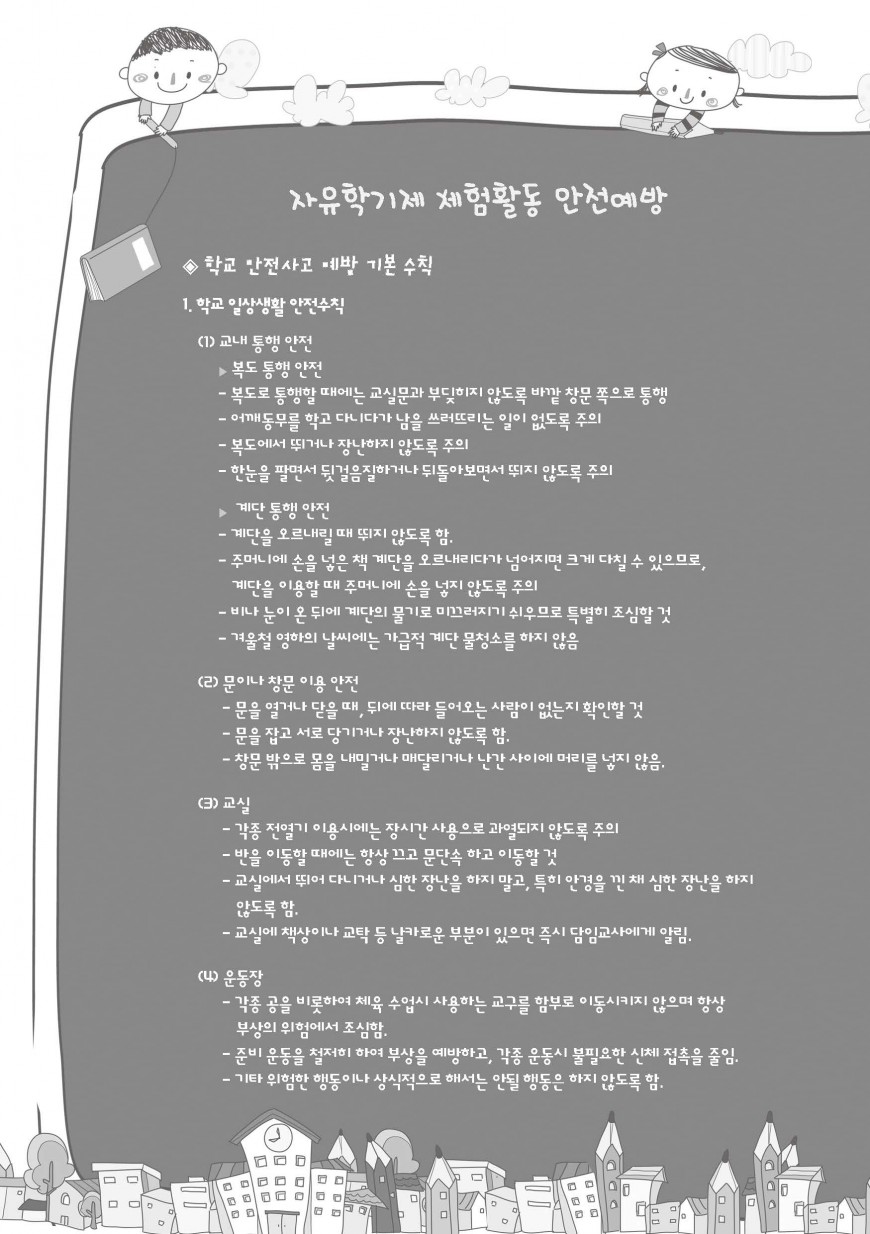 자유학기제 체험활동 안전예방
◈ 학교 안전사고 예방 기본 수칙
1. 학교 일상생활 안전수칙
(1) 교내 통행 안전
▶ 복도 통행 안전
- 복도로 통행할 때에는 교실문과 부딪히지 않도록 바깥 창문 쪽으로 통행
- 어깨동무를 학고 다니다가 남을 쓰러뜨리는 일이 없도록 주의
- 복도에서 뛰거나 장난하지 않도록 주의
- 한눈을 팔면서 뒷걸음질하거나 뒤돌아보면서 뛰지 않도록 주의
▶ 계단 통행 안전
- 계단을 오르내릴 때 뛰지 않도록 함.
- 주머니에 손을 넣은 책 계단을 오르내리다가 넘어지면 크게 다칠 수 있으므로,
계단을 이용할 때 주머니에 손을 넣지 않도록 주의
- 비나 눈이 온 뒤에 계단의 물기로 미끄러지기 쉬우므로 특별히 조심할 것
- 겨울철 영하의 날씨에는 가급적 계단 물청소를 하지 않음
(2) 문이나 창문 이용 안전
- 문을 열거나 닫을 때, 뒤에 따라 들어오는 사람이 없는지 확인할 것
- 문을 잡고 서로 당기거나 장난하지 않도록 함.
- 창문 밖으로 몸을 내밀거나 매달리거나 난간 사이에 머리를 넣지 않음.
(3) 교실
- 각종 전열기 이용시에는 장시간 사용으로 과열되지 않도록 주의
- 반을 이동할 때에는 항상 끄고 문단속 하고 이동할 것
- 교실에서 뛰어 다니거나 심한 장난을 하지 말고, 특히 안경을 낀 채 심한 장난을 하지
않도록 함.
- 교실에 책상이나 교탁 등 날카로운 부분이 있으면 즉시 담임교사에게 알림.
(4) 운동장
- 각종 공을 비롯하여 체육 수업시 사용하는 교구를 함부로 이동시키지 않으며 항상
부상의 위험에서 조심함.
- 준비 운동을 철저히 하여 부상을 예방하고, 각종 운동시 불필요한 신체 접촉을 줄임.
- 기타 위험한 행동이나 상식적으로 해서는 안될 행동은 하지 않도록 함.